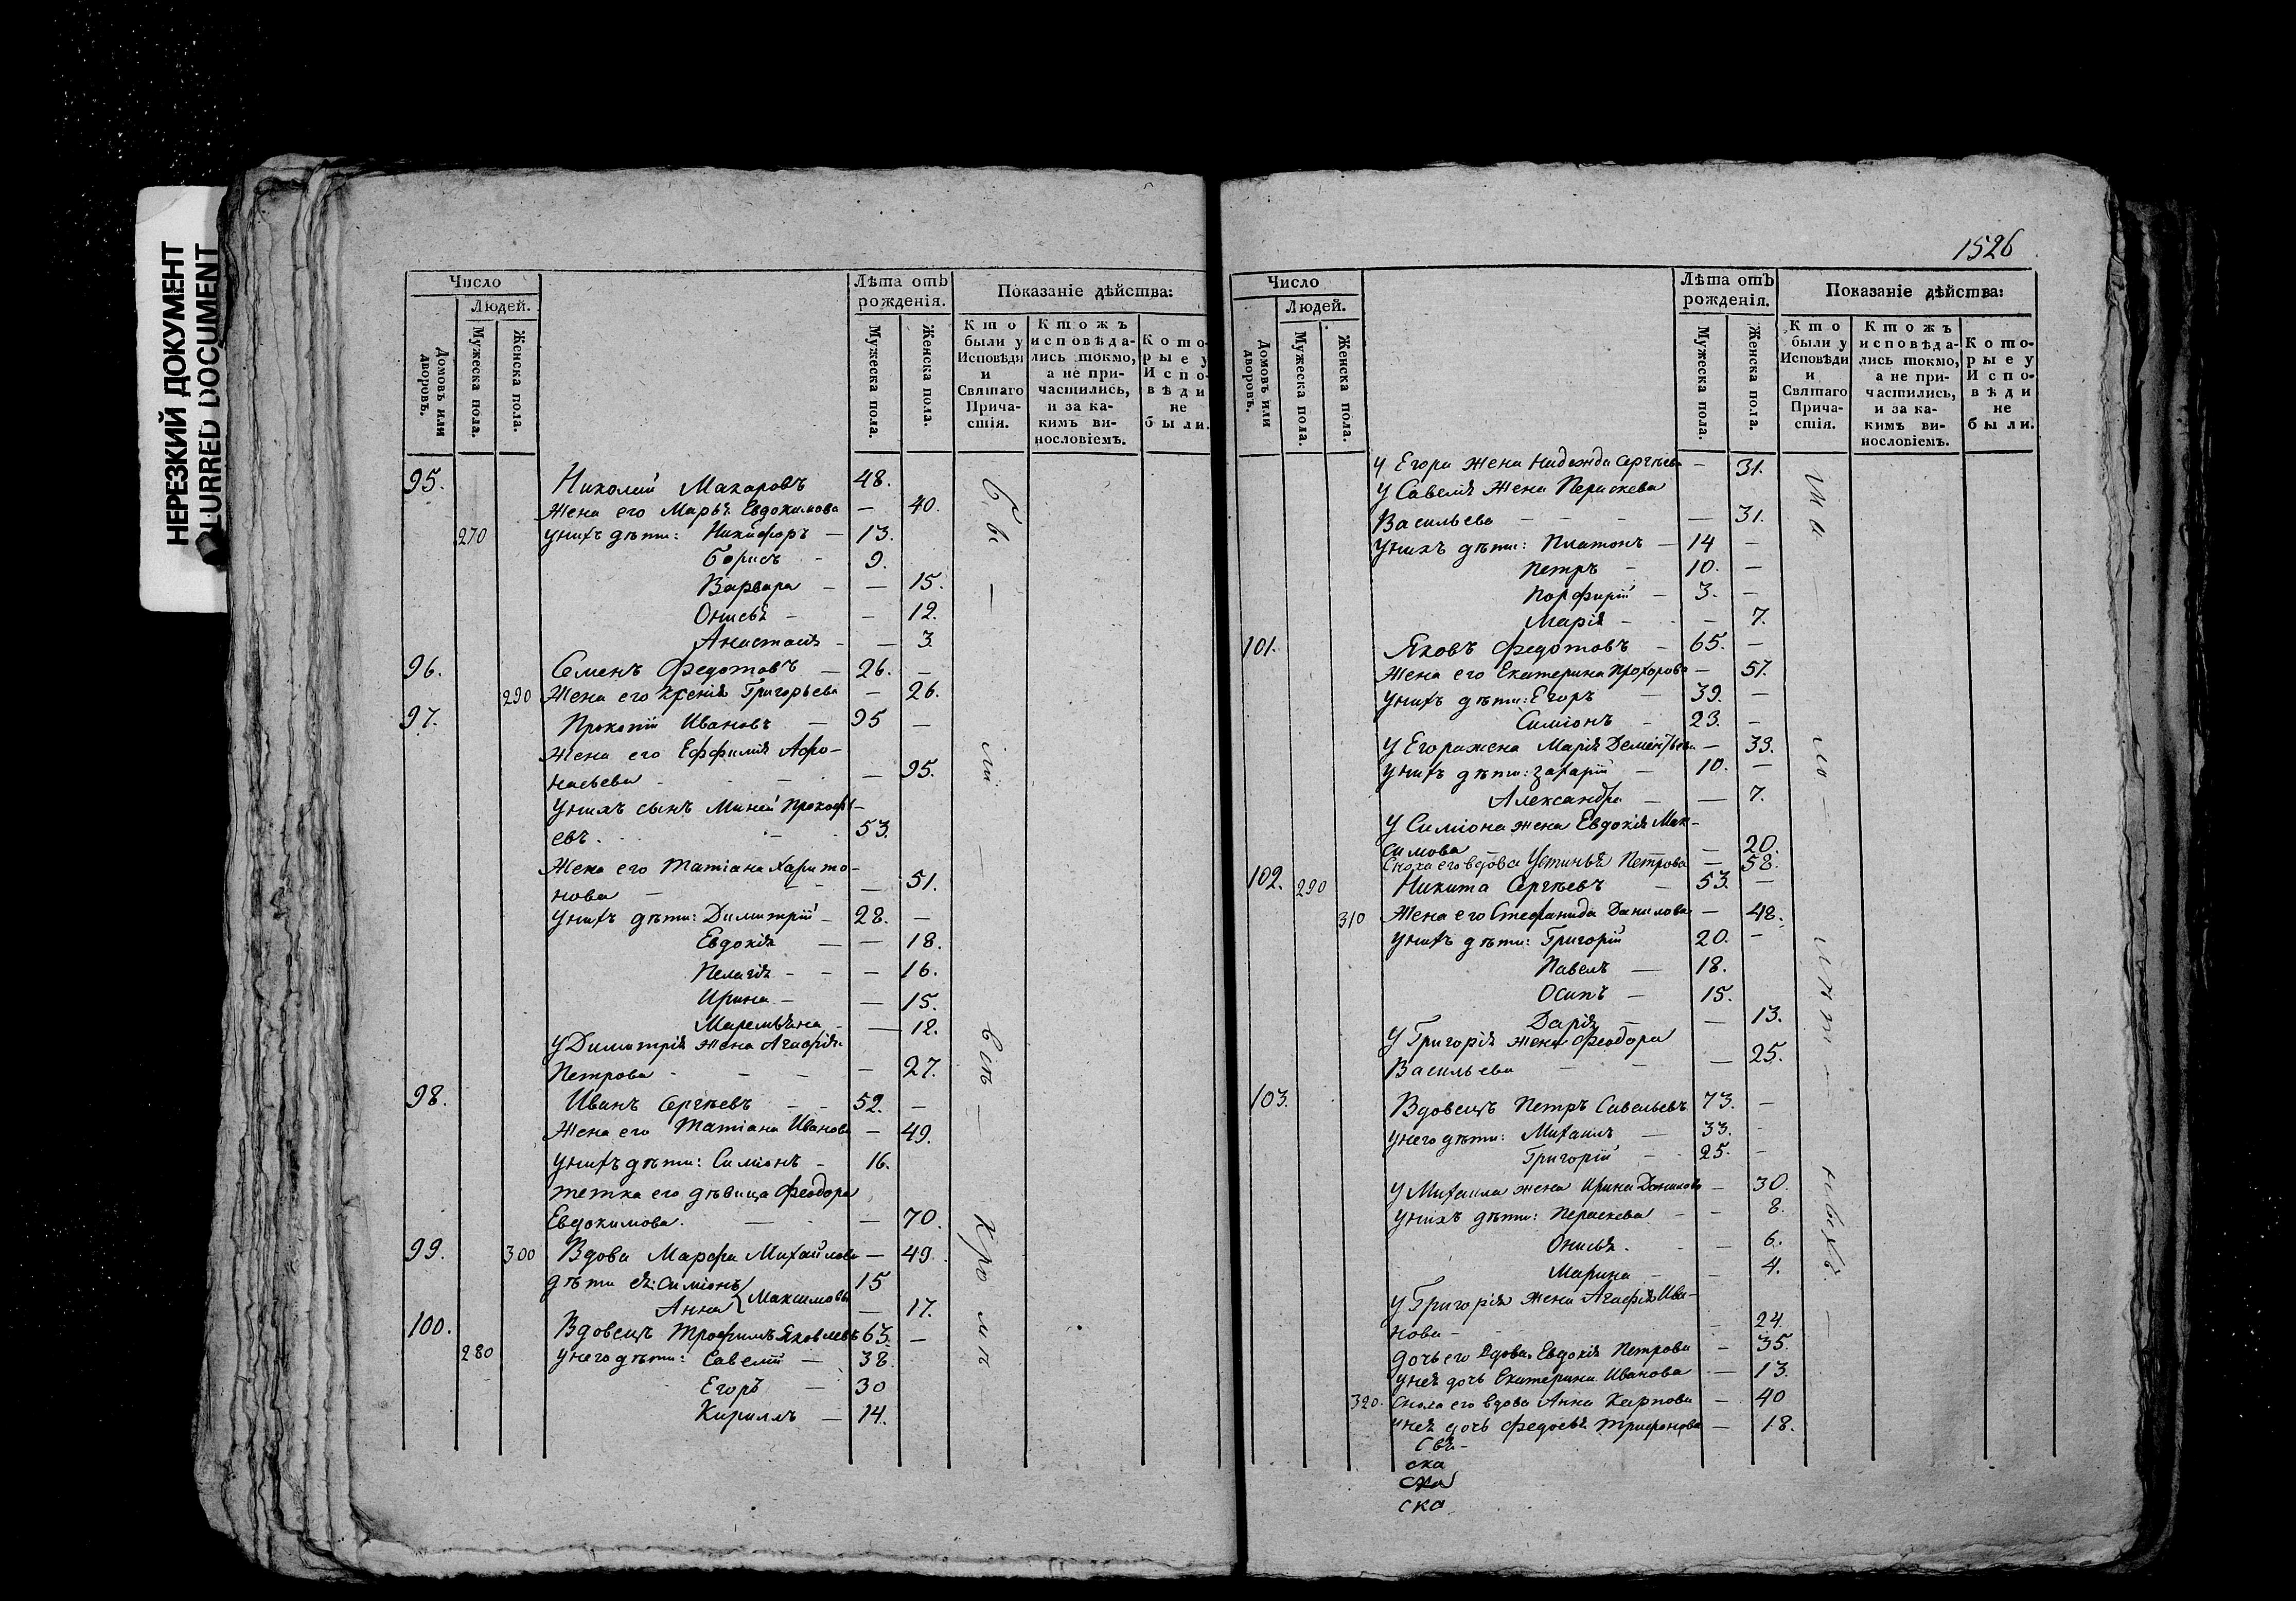 НЕРЕЗКИЙ ДОКУМЕНТ
BLURRED DOCUMENT
Число
Людей.
Домовъ или дворовъ.
Мужеска пола.
Женска пола.
Лѣта отъ рожденія.
Мужеска пола.
Женска пола.
Показаніе дѣйства:
Кто были у Исповѣди и Святаго Прича-стія.
Ктожъ исповѣда-лись токмо, а не при-частились, и за ка-кимъ ви-нословіемъ.
Кото-рые у Испо-вѣди не были.
95. Николай Макаровъ 48.
Жена его Марья Евдокимова — 40.
270 Унихъ дѣти: Никифоръ — 13.
Борисъ - 9.
Варвара — — 15.
Онисья - — 12.
Анастасія - — 3
96. Семенъ Федотовъ — 26. —
290 Жена его Ксенія Григорьева — 26.
97. Прокопій Ивановъ — 95 —
Жена его Еффимія Афо-
насьева - — 95.
Унихъ сынъ Миней Прокофь-
евъ. 53.
Жена его Татіана Харито-
нова — — 51.
Унихъ дѣти: Димитрій — 28. —
Евдокія — — 18.
Пелагія - — 16.
Ирина - — 15.
— 12.
У Димитрія жена Агафія
Петрова - — 27.
98. Иванъ Сергѣевъ — 52. —
Жена его Татіана Иванова — 49.
Унихъ дѣти: Симіонъ - 16.
тетка его дѣвица Феодора
Евдокимова. — 70.
99. 300 Вдова Марфа Михайлова — 49.
дѣти ея: Симіонъ 15
Анна } Максимовы — 17.
100. Вдовецъ Трофимъ Яковлевъ 63. —
280 Унего дѣти: Савелій — 38.
Егоръ — 30
Кирилъ — 14.
бы — ли — вск — Кро мѣ
1526
Число
Людей.
Домовъ или дворовъ.
Мужеска пола.
Женска пола.
Лѣта отъ рожденія.
Мужеска пола.
Женска пола.
Показаніе дѣйства:
Кто были у Исповѣди и Святаго Прича-стія.
Ктожъ исповѣда-лись токмо, а не при-частились, и за ка-кимъ ви-нословіемъ.
Кото-рые у Испо-вѣди не были.
У Егора жена Надежда Сергѣева — 31.
У Савелія жена Параскева
Васильева — — 31.
Унихъ дѣти: Платонъ — 14 —
Петръ - 10. —
Порфирій — 3. —
Марія - — 7.
101. Яковъ Федотовъ - 65. —
Жена его Екатерина Прохорова — 57.
Унихъ дѣти: Егоръ — 39. —
Симіонъ - 23. —
У Егора жена Марія Дементьева — 39.
Унихъ дѣти: Захарій — 10. —
Александра — — 7.
У Симіона жена Евдокія Мак-
симова — — 20.
Сноха его вдова Устинья Петрова — 58.
102. 290 Никита Сергѣевъ — 53. —
310 Жена его Стефанида Данилова — 48.
Унихъ дѣти: Григорій 20. —
Павелъ — 18.
Осипъ — 15.
Дарія — — 13.
У Григорія жена Феодора
Васильева — 25.
103. Вдовецъ Петръ Савельевъ 73. —
Унего дѣти: Михаилъ — 33. —
Григорій - 25. —
У Михаила жена Ирина Данилова — 30.
Унихъ дѣти: Параскева - — 8.
Онисья. — 6.
Марина — — 4.
У Григорія жена Агафія Ива-
нова - — 24.
дочь его вдова Евдокія Петрова — 35.
Унея дочь Екатерина Иванова — 13.
320. Сноха его вдова Анна Карпова — 40
Унея дочь Федосья Трифонова — 18.
Свя-
ска
ска
ска
ма — ло — лѣт — ныхъ. —